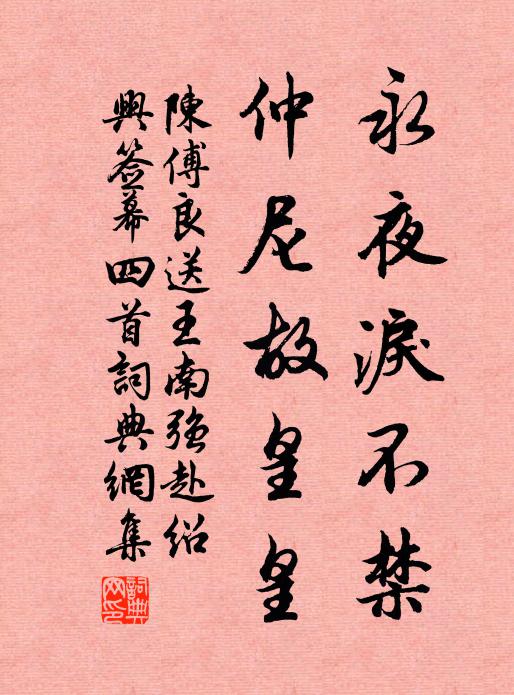 永夜淚不禁
仲尼故皇皇
陳傅良送王南強赴紹
興簽幕四首詞典網集
詞典网印